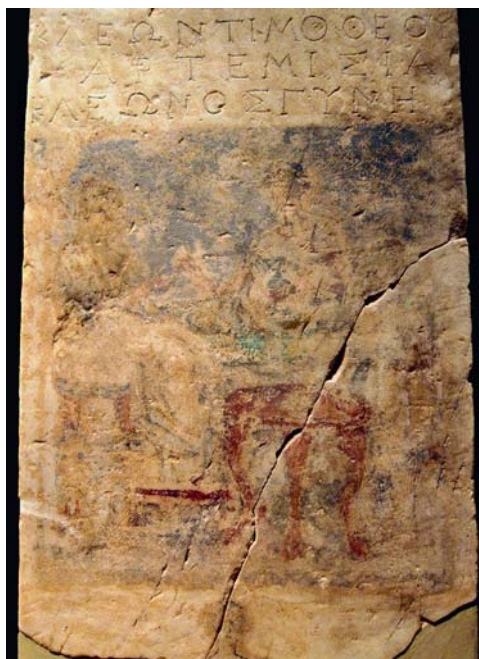 ΚΛΕΩΝΤΙΜΟΘΕΟΥ
ΑΡΤΕΜΙΣΙΑ
ΚΛΕΩΝΟΣΓΥΝΗ